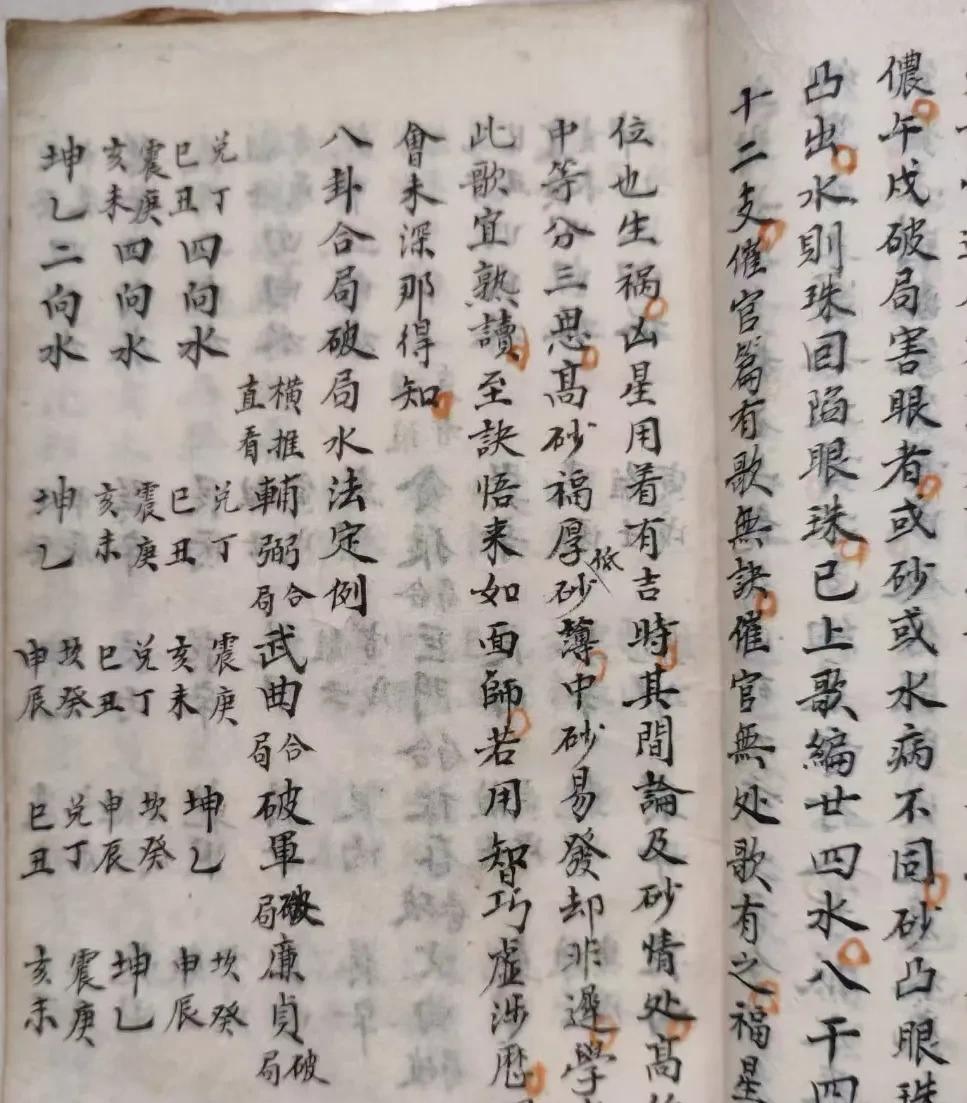 儂午戌破局害眼者或砂或水病不同砂凸眼珠
凸出水則珠囙陷眼珠已上歌編廿四水八干四
十二支催官篇有歌無訣催官無处歌有之福星
位也生祸凶星用着有吉時其間論及砂情处高
中等分三思高砂福厚低砂薄中砂易發却非遲學
此歌宜熟讀至訣悟来如面師若用智巧虛涉歷
會未深那得知
八卦合局破局水法定例
橫推直看 輔弼合局 武曲合局 破軍破局 廉貞破局
兑丁巳丑四向水 兑丁巳丑 震庚亥未 坤乙 坎癸申辰
震庚亥未四向水 震庚亥未 兑丁巳丑 坎癸申辰 坤乙
坤乙二向水 坤乙 坎癸申辰 兑丁巳丑 震庚亥未